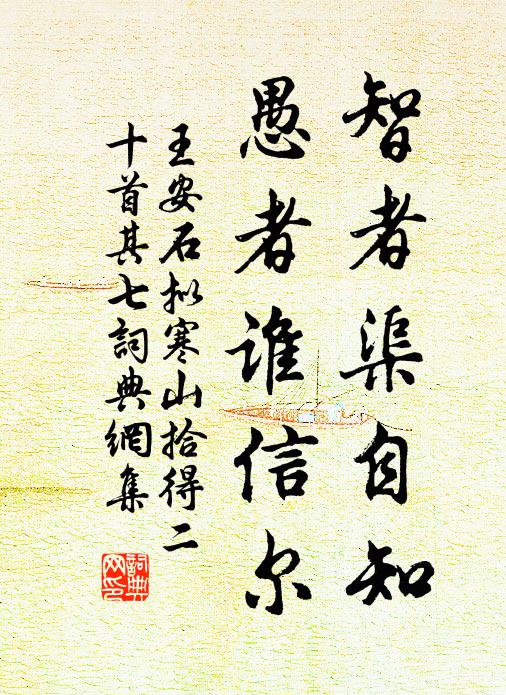 智者渠自知
愚者谁信尔
王安石拟寒山拾得二
十首其七詞典網集
詞典
网印